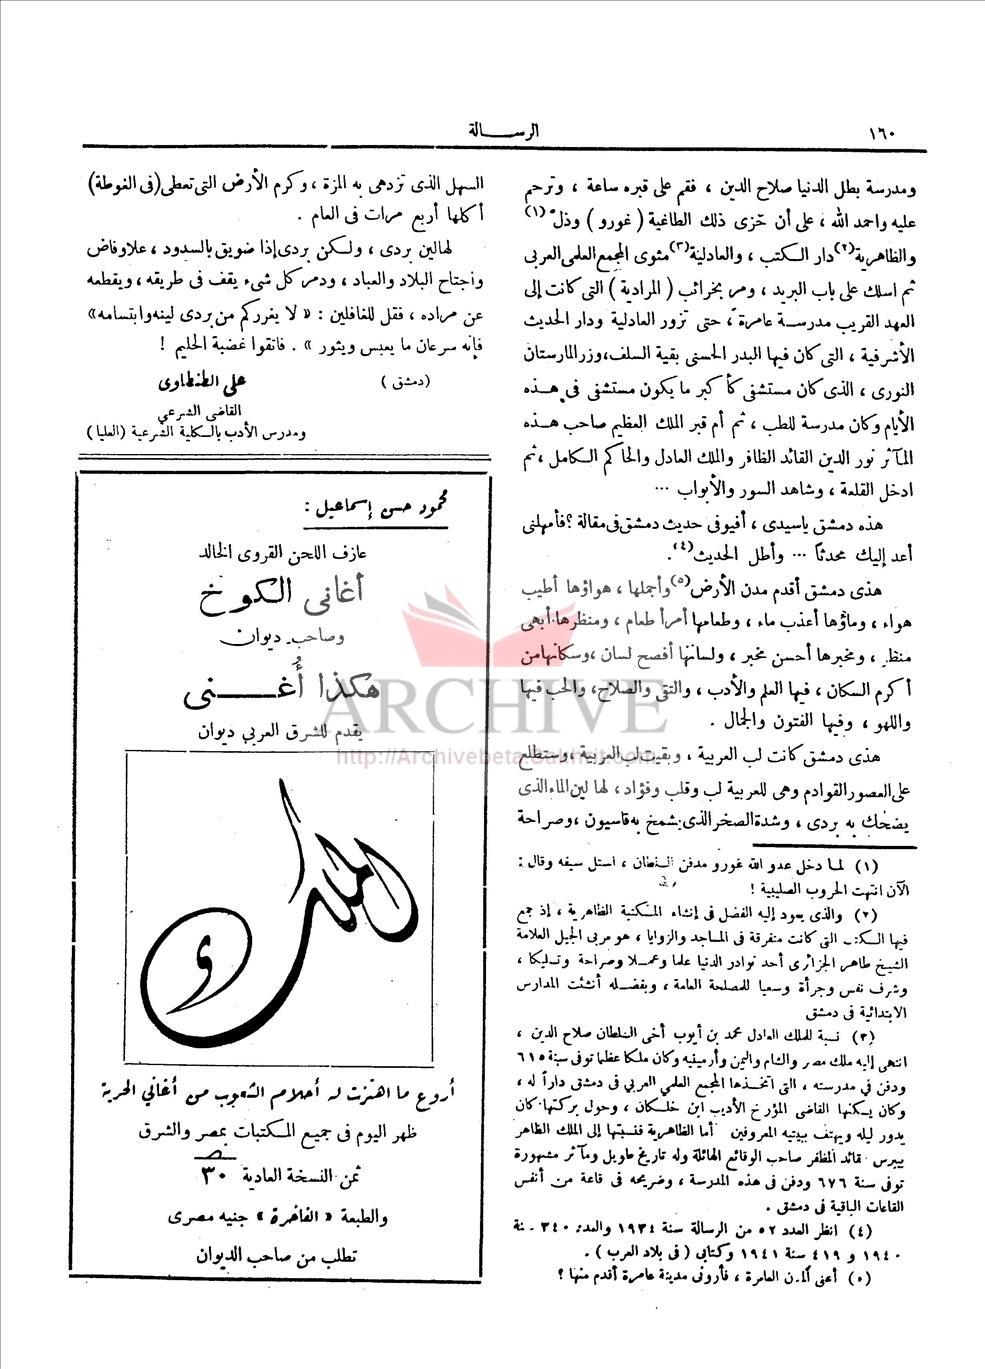 ١٦٠
الرسالة
ومدرسة بطل الدنيا صلاح الدين ، فقم على قبره ساعة ، وترحم
عليه واحمد الله ، على أن خزى ذلك الطاغية ( غورو ) وذل (١)
والظاهرية(٢) دار الكتب ، والعادلية(٣) مثوى المجمع العلمى العربى
ثم اسلك على باب البريد ، ومر بخرائب ( المرادية ) التى كانت إلى
العهد القريب مدرسة عامرة ، حتى تزور العادلية ودار الحديث
الأشرفية ، التى كان فيها البدر الحسنى بقية السلف، وزر المارستان
النورى ، الذى كان مستشفى كأكبر ما يكون مستشفى فى هذه
الأيام وكان مدرسة للطب ، ثم أم قبر الملك العظيم صاحب هذه
المآثر نور الدين القائد الظافر والملك العادل والحاكم الكامل ، ثم
ادخل القلعة ، وشاهد السور والأبواب ...
هذه دمشق ياسيدى ، أفيوفى حديث دمشق فى مقالة ؟ فأمهلنى
أعد إليك محدثاً ... وأطل الحديث(٤).
هذى دمشق أقدم مدن الأرض(٥) وأجملها ، هواؤها أطيب
هواء ، وماؤها أعذب ماء ، وطعامها أمرأ طعام ، ومنظرها أبهى
منظر ، ومخبرها أحسن مخبر ، ولسانها أفصح لسان ، وسكانها من
أكرم السكان ، فيها العلم والأدب ، والتقى والصلاح، والحب فيها
واللهو ، وفيها الفتون والجمال .
هذى دمشق كانت لب العربية ، وبقيت لب العربية ، وستظلع
على العصور القوادم وهى للعربية لب وقلب وفؤاد ، لها لين الماء الذى
يضحك به بردى ، وشدة الصخر الذى يشمخ به قاسيون ، وصراحة
(١) لما دخل عدو الله غورو مدفن السلطان ، استل سيفه وقال :
الآن انتهت الحروب الصليبية !
(٢) والذى يعود إليه الفضل فى إنشاء المكتبة الظاهرية ، إذ جمع
فيها الكتب التى كانت متفرقة فى المساجد والزوايا ، هو مربى الجيل العلامة
الشيخ طاهر الجزائرى أحد نوادر الدنيا علما وعملا وصراحة وتمليكا ،
وشرف نفس وجرأة وسعيا للمصلحة العامة ، وبفضله أنشئت المدارس
الابتدائية فى دمشق
(٣) نسبة للملك العادل محمد بن أيوب أخى السلطان صلاح الدين ،
انتهى إليه ملك مصر والشام واليمن وأرمينيه وكان ملكا عظيما توفى سنة ٦١٥
ودفن فى مدرسته ، التى اتخذها المجمع العلمى العربى فى دمشق داراً له ،
وكان يسكنها القاضى المؤرخ الأديب ابن خلكان ، وحول بركتها كان
يدور ليله ويهتف ببيتيه المعروفين أما الظاهرية فنسبتها إلى الملك الظاهر
بيبرس قائد المظفر صاحب الوقائع الهائلة وله تاريخ طويل ومآثر مشهورة
توفى سنة ٦٧٦ ودفن فى هذه المدرسة ، وضريحه فى قاعة من أنفس
القاعات الباقية فى دمشق .
(٤) انظر العدد ٥٢ من الرسالة سنة ١٩٣٤ والعدد ٣٤٠ سنة
١٩٤٠ و ٤١٩ سنة ١٩٤١ وكتابى ( فى بلاد العرب ) .
(٥) أعنى المدن العامرة ، فأرونى مدينة عامرة أقدم منها ؟
السهل الذى تزدهى به المزة ، وكرم الأرض التى تعطى (فى الغوطة)
أكلها أربع مرات فى العام .
لها لين بردى ، ولكن بردى إذا ضويق بالسدود ، علا وفاض
واجتاح البلاد والعباد ، ودمر كل شىء يقف فى طريقه ، ويقطعه
عن مراده ، فقل للغافلين : « لا يغرركم من بردى لينه وابتسامه »
فإنه سرعان ما يعبس ويثور » . فاتقوا غضبة الحليم !
(دمشق) على الطنطاوى
القاضى الشرعي
ومدرس الأدب بالكلية الشرعية (العليا)
محمود حسن إسماعيل :
عازف اللحن القروى الخالد
أغانى الكوخ
وصاحب ديوان
هكذا أُغنى
يقدم للشرق العربي ديوان
الملك
أروع ما اهتزت له أحلام الشعوب من أغاني الحرية
ظهر اليوم فى جميع المكتبات بمصر والشرق
ثمن النسخة العادية ٣٠
والطبعة « الفاخرة » جنيه مصرى
تطلب من صاحب الديوان
ARCHIVE
http://Archivebeta.Sakhrit.com